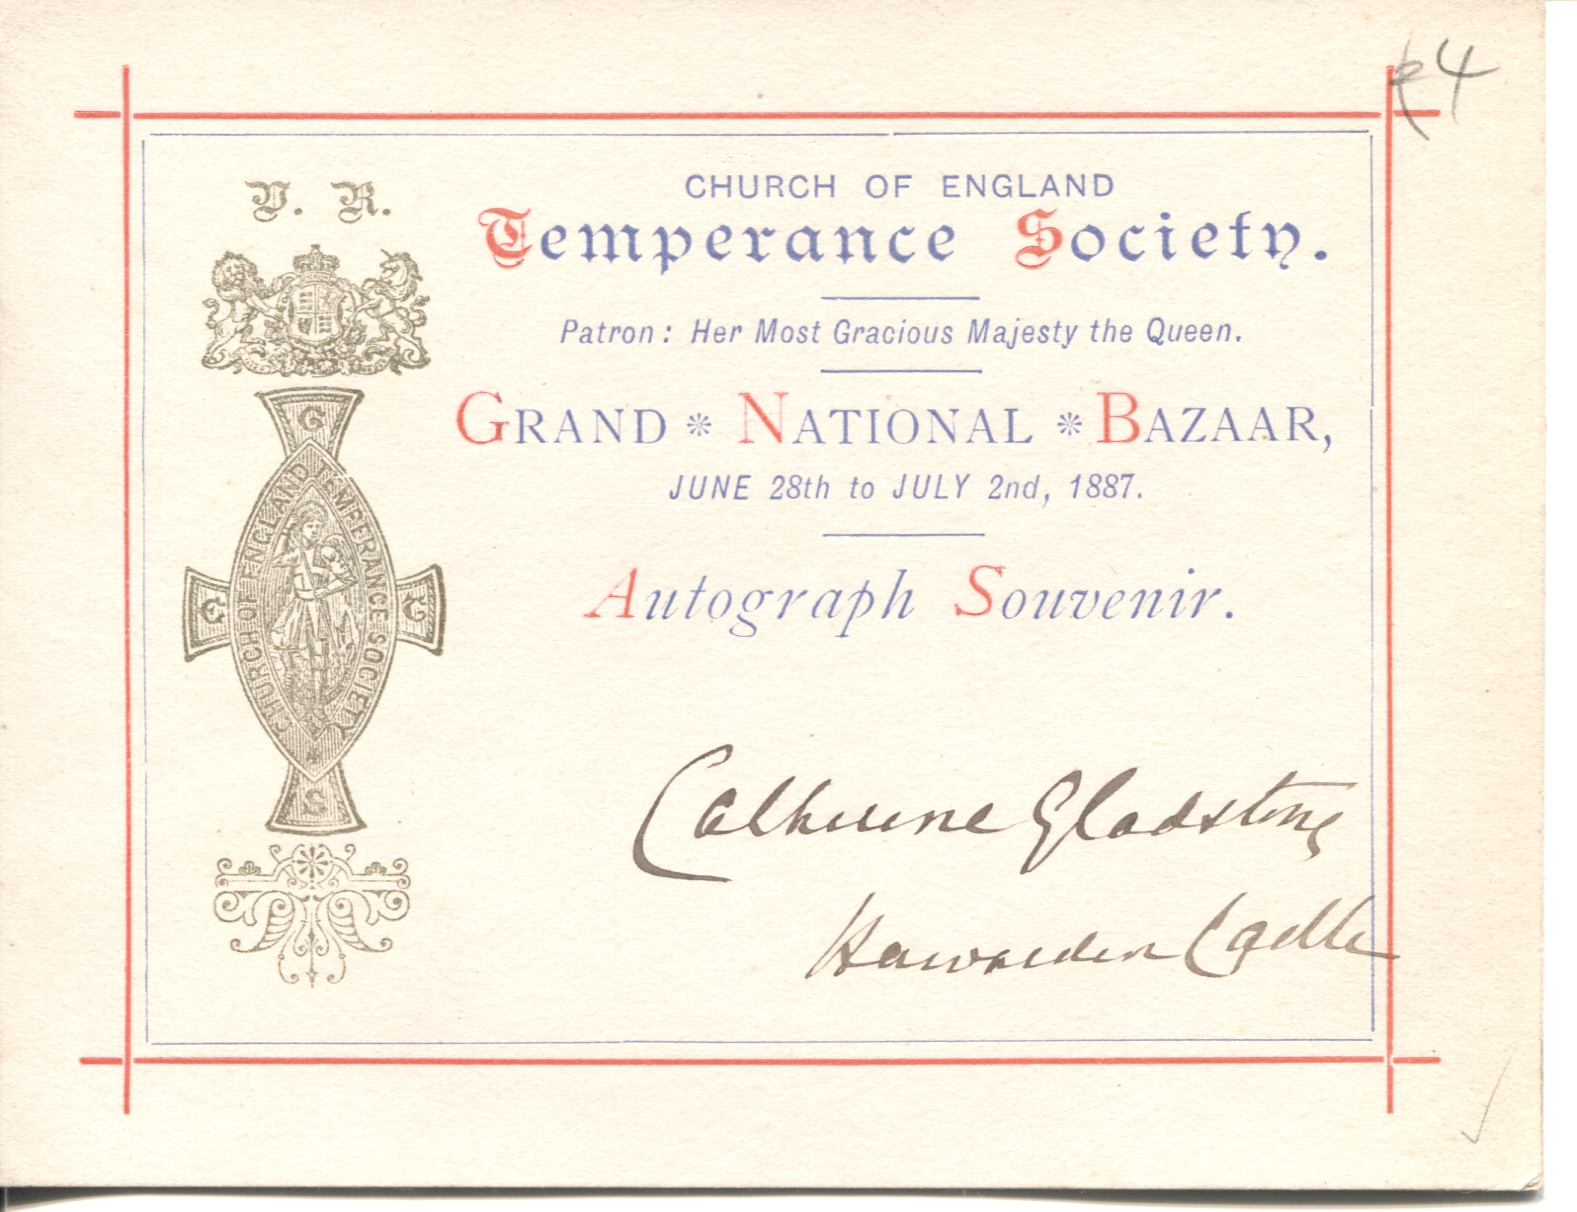 24
V. R.
CHURCH OF ENGLAND
Temperance Society.
Patron: Her Most Gracious Majesty the Queen.
GRAND * NATIONAL * BAZAAR,
JUNE 28th to JULY 2nd, 1887.
Autograph Souvenir.
C
E T
S
CHURCH OF ENGLAND TEMPERANCE SOCIETY
Catherine Gladstone
Hawarden Castle